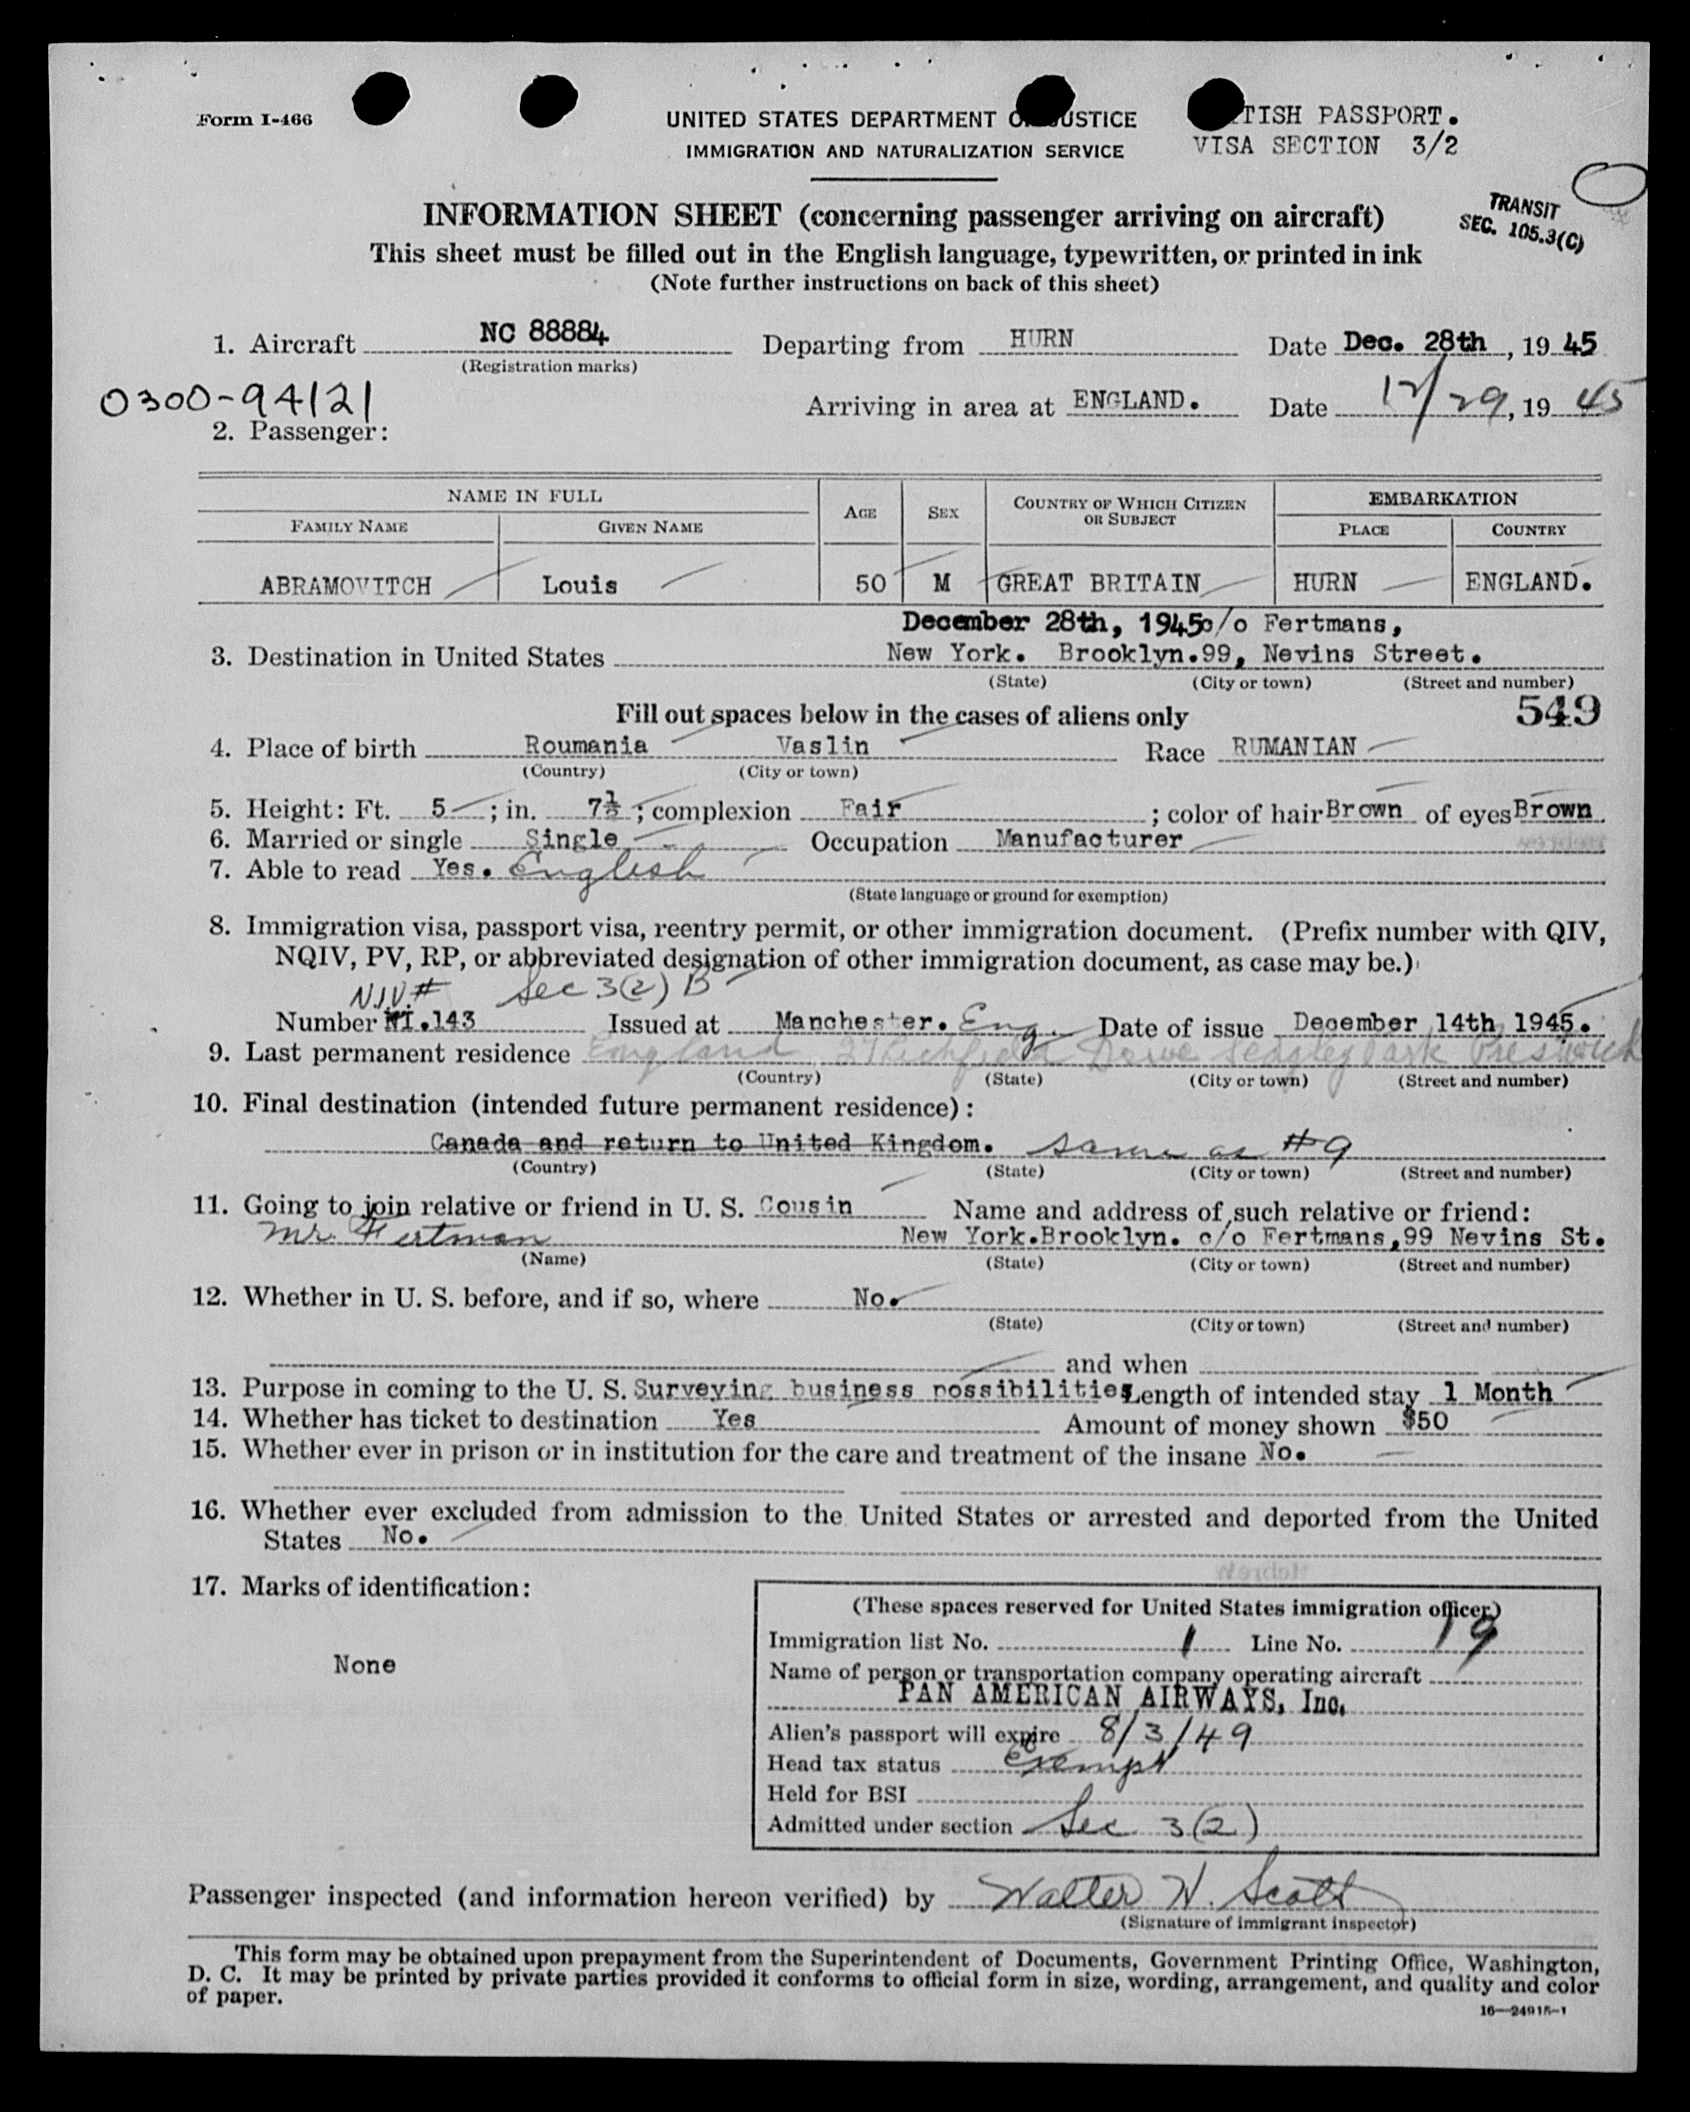 Form I-466
UNITED STATES DEPARTMENT OF JUSTICE
TISH PASSPORT.
IMMIGRATION AND NATURALIZATION SERVICE
VISA SECTION 3/2
TRANSIT
SEC. 105.3(C)
INFORMATION SHEET (concerning passenger arriving on aircraft)
This sheet must be filled out in the English language, typewritten, or printed in ink
(Note further instructions on back of this sheet)
1. Aircraft NC 88884 Departing from HURN Date Dec. 28th, 1945
(Registration marks)
0300-94121
Arriving in area at ENGLAND. Date 12/29, 1945
2. Passenger:
NAME IN FULL AGE SEX COUNTRY OF WHICH CITIZEN OR SUBJECT EMBARKATION
FAMILY NAME GIVEN NAME PLACE COUNTRY
ABRAMOVITCH Louis 50 M GREAT BRITAIN HURN ENGLAND.
December 28th, 1945 c/o Fertmans,
3. Destination in United States New York. Brooklyn. 99, Nevins Street.
(State) (City or town) (Street and number)
Fill out spaces below in the cases of aliens only 549
4. Place of birth Roumania Vaslin Race RUMANIAN
(Country) (City or town)
5. Height: Ft. 5; in. 7½; complexion Fair; color of hair Brown of eyes Brown
6. Married or single Single Occupation Manufacturer
7. Able to read Yes. English
(State language or ground for exemption)
8. Immigration visa, passport visa, reentry permit, or other immigration document. (Prefix number with QIV,
NQIV, PV, RP, or abbreviated designation of other immigration document, as case may be.)
N.I.V.# Sec 3(2) B
Number NI.143 Issued at Manchester. Eng. Date of issue December 14th 1945.
9. Last permanent residence England 27 Richfield Drive Sedgley Park Prestwich
(Country) (State) (City or town) (Street and number)
10. Final destination (intended future permanent residence):
Canada and return to United Kingdom. same as #9
(Country) (State) (City or town) (Street and number)
11. Going to join relative or friend in U. S. Cousin Name and address of such relative or friend:
Mr. Fertman New York. Brooklyn. c/o Fertmans, 99 Nevins St.
(Name) (State) (City or town) (Street and number)
12. Whether in U. S. before, and if so, where No.
(State) (City or town) (Street and number)
and when
13. Purpose in coming to the U. S. Surveying business possibilities Length of intended stay 1 Month
14. Whether has ticket to destination Yes Amount of money shown $50
15. Whether ever in prison or in institution for the care and treatment of the insane No.
16. Whether ever excluded from admission to the United States or arrested and deported from the United
States No.
17. Marks of identification:
None
(These spaces reserved for United States immigration officer)
Immigration list No. 1 Line No. 19
Name of person or transportation company operating aircraft
PAN AMERICAN AIRWAYS, Inc.
Alien's passport will expire 8/3/49
Head tax status Exempt
Held for BSI
Admitted under section Sec 3(2)
Passenger inspected (and information hereon verified) by Walter W. Scott
(Signature of immigrant inspector)
This form may be obtained upon prepayment from the Superintendent of Documents, Government Printing Office, Washington,
D. C. It may be printed by private parties provided it conforms to official form in size, wording, arrangement, and quality and color
of paper.
16—24915-1